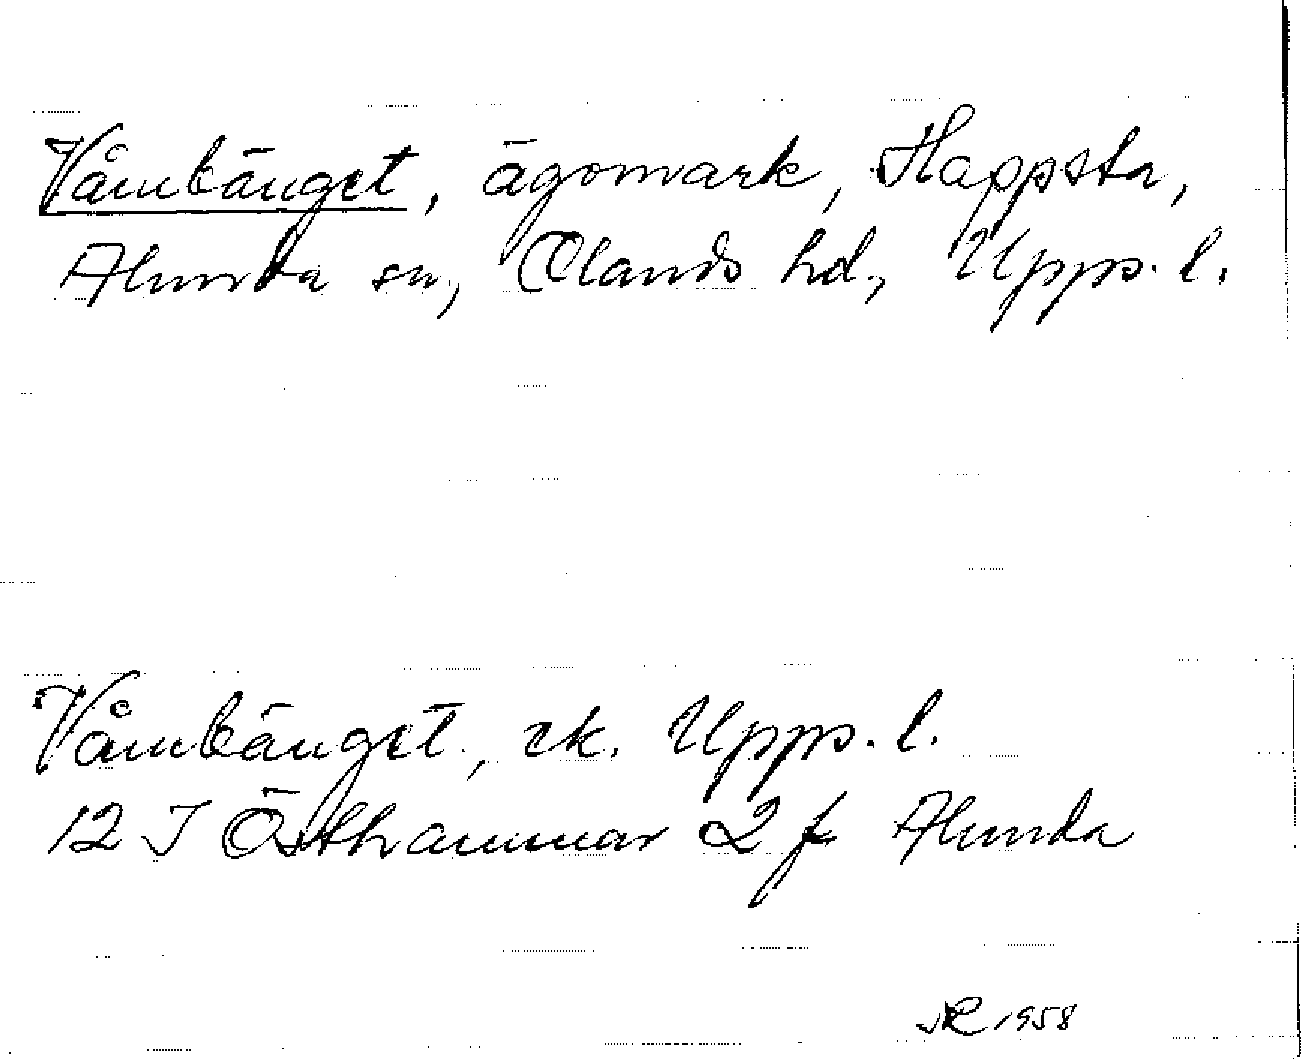 Våmbänget, ägomark, Happsta,
Alunda sn, Olands hd, Upps. l.
Våmbänget, ek. Upps. l.
12 I Östhammar 2 f Alunda
1958